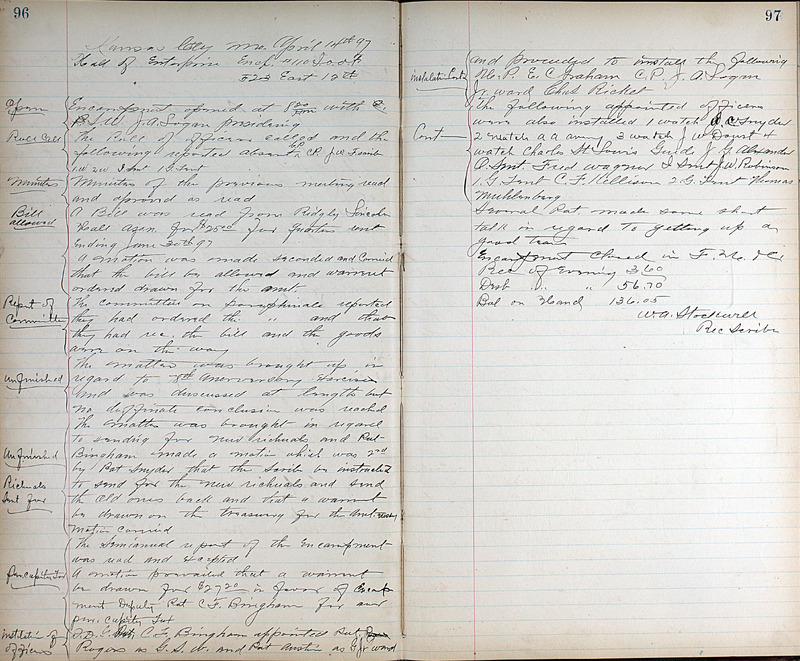 96
Kansas City Mo. April 14th 97
Hall of Enterprise Encp. I.O.O.F
East 12th
Open
Encampment opened at 8 20 PM with
J. A. Logan presiding
Role Call
The Role of officers called and the
following reported absent C.P. J.W.
Minutes
Minutes of the previous meeting read
and aproved as read
Bill allowed
A Bill was read from Ridgley Lincoln
Hall Assn for $25.00 for Quarters rent
Ending June 30th 97
A motion was made seconded and Carried
that the bill be allowed and warrent
ordered drawn for the amt.
Report of Committee
The committee on paraphinale reported
they had ordered the " and that
they had rec the bill and the goods
were on the way
Unfinished
The matter was brought up in
regard to Aneversary Excercises
and was discussed at length but
no deffinate conclusion was reached
The matter was brought in regard
to sending for new richuals and Pat
Unfinished
Bingham made a motion which was 2nd
by Pat Snyder that the Scribe be instructed
Richuals Sent for
to send for the new richuals and send
the old ones back and that a warrent
be drawn on the treasury for the amt.
Motion Carried
The Semianual report of the Encampment
was read and Excepted
Per Capity Tax
A motion prevailed that a warrent
be drawn for $27.20 in favor of Encamp
ment Deputy Pat C.F. Bingham for our
per. Capity Tax
Instalation of officers
D.D.G. C.F. Bingham appointed Pat
Rogers as G.S.W. and Pat Austin as G Jr ward
97
and proceeded to install the following
Instalation Cont
H.P. E. C Graham C.P. J. A. Logan
Jr. ward Chas Ricket
The following appointed officers
were also installed 1 watch Snyder
Cont
2 watch A A 3 watch J W 4
watch Charles St Louis Guide J. G. Alexander
O. Sent. Fred Wagner I Sent J.W. Robinson
1. G. Tent C. F. Kellison 2 G. Tent Thomas
Muhlenberg
Several Pat. made some short
talk in regard to getting up a
good team
Encampment Closed in F. H. & C
Rec of Evening 3.60
Disb " " 56.70
Bal on Hand 136.05
W.A. Stockwell
Rec Scribe